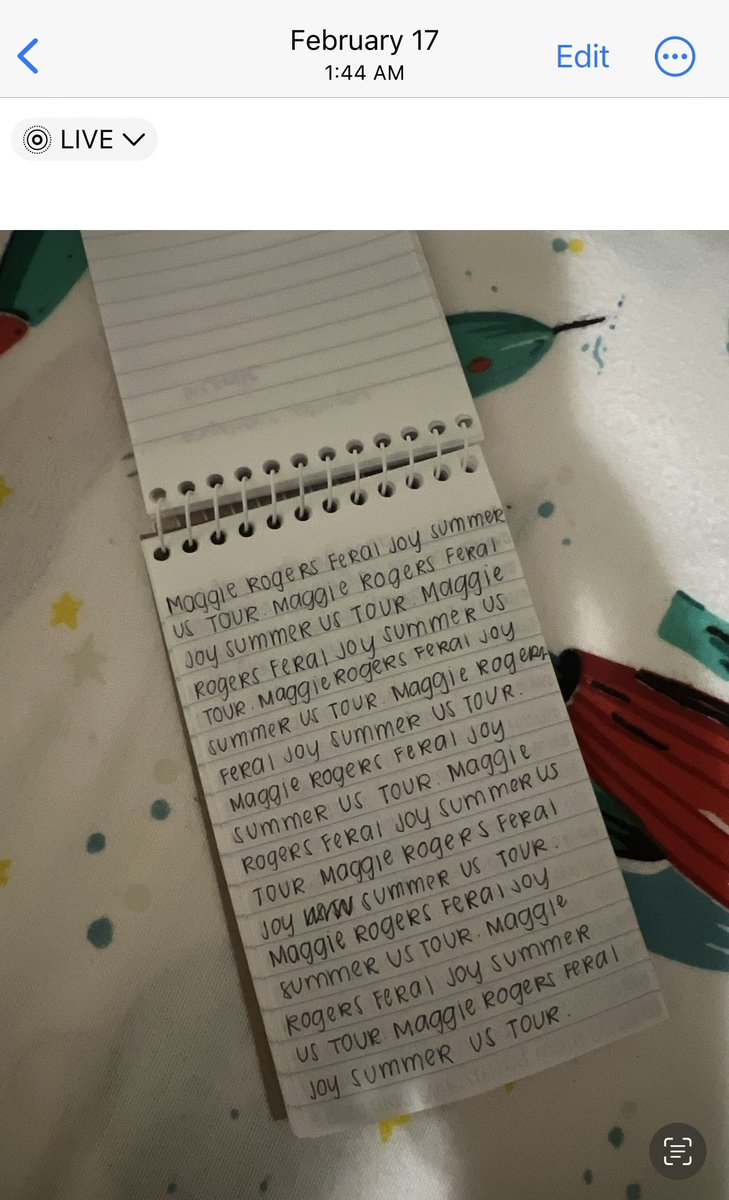 February 17
1:44 AM
Edit
LIVE
Maggie Rogers Feral Joy summer
US TOUR. Maggie Rogers Feral
Joy summer US TOUR. Maggie
Rogers Feral Joy summer US
TOUR. Maggie Rogers Feral Joy
summer US TOUR. Maggie Rogers
Feral Joy summer US TOUR.
Maggie Rogers Feral Joy
summer US TOUR. Maggie
Rogers Feral Joy summer US
TOUR. Maggie Rogers Feral
Joy summer US TOUR.
Maggie Rogers Feral Joy
summer US TOUR. Maggie
Rogers Feral Joy summer
US TOUR. Maggie Rogers Feral
Joy summer US TOUR.